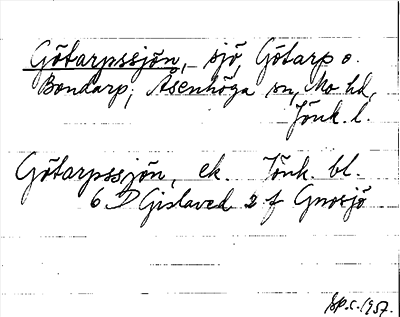 Götarpssjön, sjö, Götarp o.
Bondarp; Åsenhöga sn, Mo hd,
Jönk. l.
Götarpssjön, ek. Jönk. bl.
6 D Gislaved 2 f Gnosjö
1957.